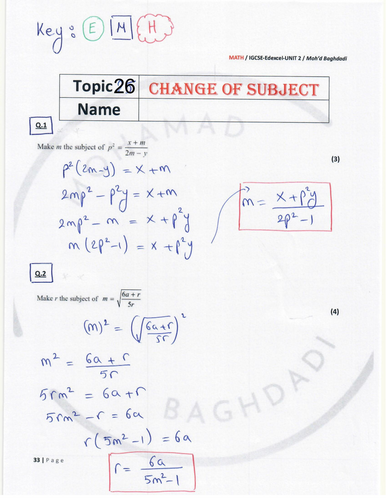 Key: E M H
MATH / IGCSE-Edexcel-UNIT 2 / Moh'd Baghdadi
Topic 26 CHANGE OF SUBJECT
Name
Q.1
Make m the subject of p² = (x + m)/(2m − y)
(3)
p²(2m-y) = x+m
2mp² - p²y = x+m
2mp² - m = x + p²y
m(2p²-1) = x + p²y
m = (x + p²y)/(2p²-1)
Q.2
Make r the subject of m = √((6a + r)/5r)
(4)
(m)² = (√((6a+r)/5r))²
m² = (6a + r)/5r
5rm² = 6a+r
5rm² - r = 6a
r(5m²-1) = 6a
r = 6a/(5m²-1)
33 | Page
MOHAMAD
BAGHDADI